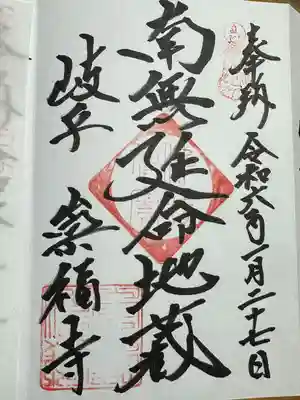 奉拝 令和六年一月二十七日
南無延命地蔵
岐阜 崇福寺